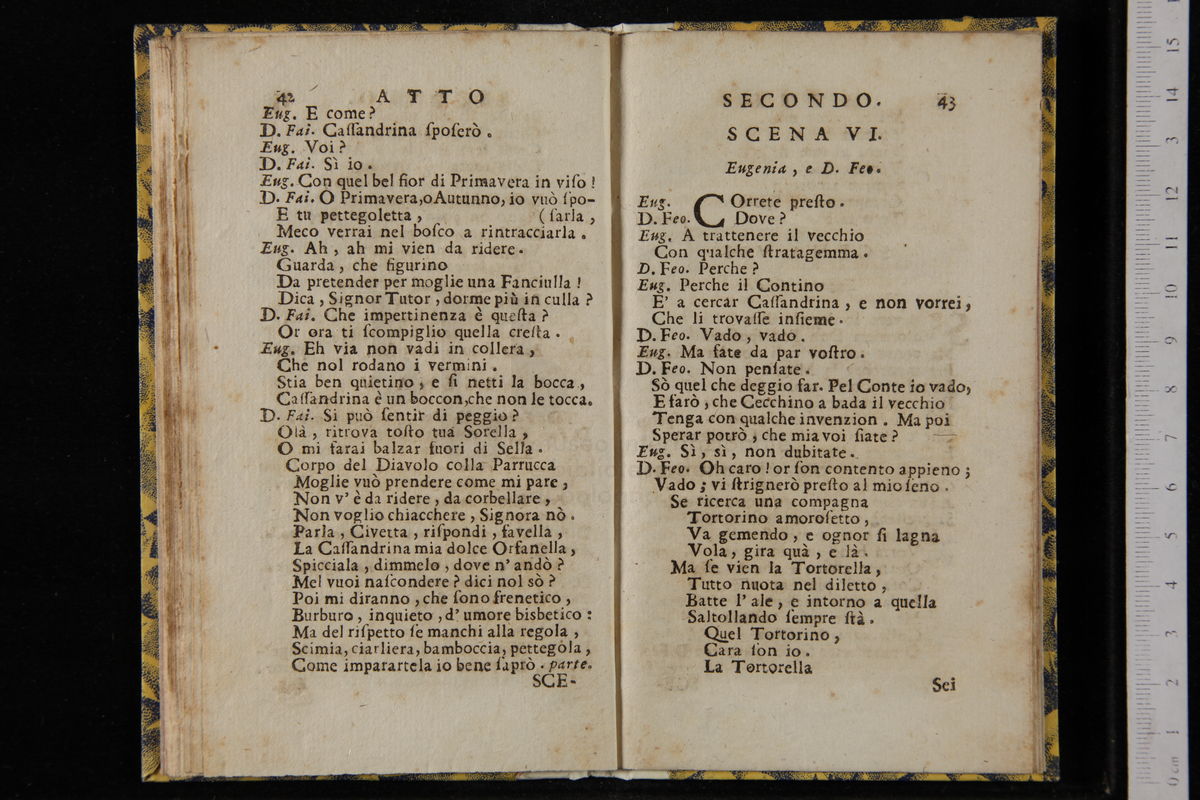 42 ATTO
Eug. E come?
D. Fai. Caſſandrina ſpoſerò.
Eug. Voi?
D. Fai. Sì io.
Eug. Con quel bel fior di Primavera in viſo!
D. Fai. O Primavera,o Autunno, io vuò ſpo-
E tu pettegoletta, (ſarla,
Meco verrai nel boſco a rintracciarla.
Eug. Ah, ah mi vien da ridere.
Guarda, che figurino
Da pretender per moglie una Fanciulla!
Dica, Signor Tutor, dorme più in culla?
D. Fai. Che impertinenza è queſta?
Or ora ti ſcompiglio quella creſta.
Eug. Eh via non vadi in collera,
Che nol rodano i vermini.
Stia ben quietino, e ſi netti la bocca,
Caſſandrina è un boccon,che non le tocca.
D. Fai. Si può ſentir di peggio?
Olà, ritrova toſto tua Sorella,
O mi farai balzar fuori di Sella.
Corpo del Diavolo colla Parrucca
Moglie vuò prendere come mi pare,
Non v' è da ridere, da corbellare,
Non voglio chiacchere, Signora nò.
Parla, Civetta, riſpondi, favella,
La Caſſandrina mia dolce Orfanella,
Spicciala, dimmelo, dove n' andò?
Mel vuoi naſcondere? dici nol sò?
Poi mi diranno, che ſono frenetico,
Burburo, inquieto, d' umore bisbetico:
Ma del riſpetto ſe manchi alla regola,
Scimia, ciarliera, bamboccia, pettegola,
Come imparartela io bene ſaprò. parte.
SCE-
SECONDO. 43
SCENA VI.
Eugenia, e D. Feo.
Eug. COrrete preſto.
D. Feo. Dove?
Eug. A trattenere il vecchio
Con qualche ſtratagemma.
D. Feo. Perche?
Eug. Perche il Contino
E' a cercar Caſſandrina, e non vorrei,
Che li trovaſſe inſieme.
D. Feo. Vado, vado.
Eug. Ma fate da par voſtro.
D. Feo. Non penſate.
Sò quel che deggio far. Pel Conte io vado,
E farò, che Cecchino a bada il vecchio
Tenga con qualche invenzion. Ma poi
Sperar potrò, che mia voi ſiate?
Eug. Sì, sì, non dubitate.
D. Feo. Oh caro! or ſon contento appieno;
Vado; vi ſtrignerò preſto al mio ſeno.
Se ricerca una compagna
Tortorino amoroſetto,
Va gemendo, e ognor ſi lagna
Vola, gira quà, e là.
Ma ſe vien la Tortorella,
Tutto nuota nel diletto,
Batte l' ale, e intorno a quella
Saltollando ſempre ſtà.
Quel Tortorino,
Cara ſon io.
La Tortorella
Sei
0 cm 1 2 3 4 5 6 7 8 9 10 11 12 13 14 15